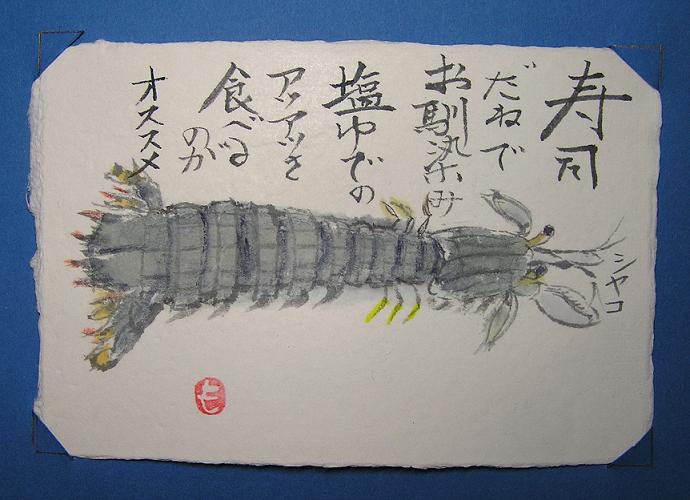 寿司
だねで
お馴染み
塩ゆでの
アツアツを
食べる
のが
オススメ
シャコ